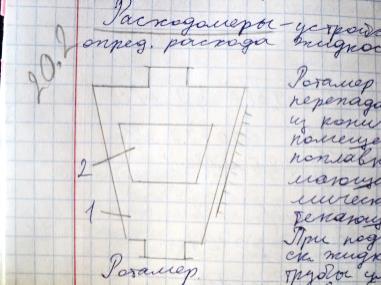 Расходомеры - устройс
опред. расхода жидкос
20.2
Ротамер
перепада
из кони
помеще
поплавк
2
мающе
мическ
1
текающ
При под
ск. жидк
трубы
Ротамер.